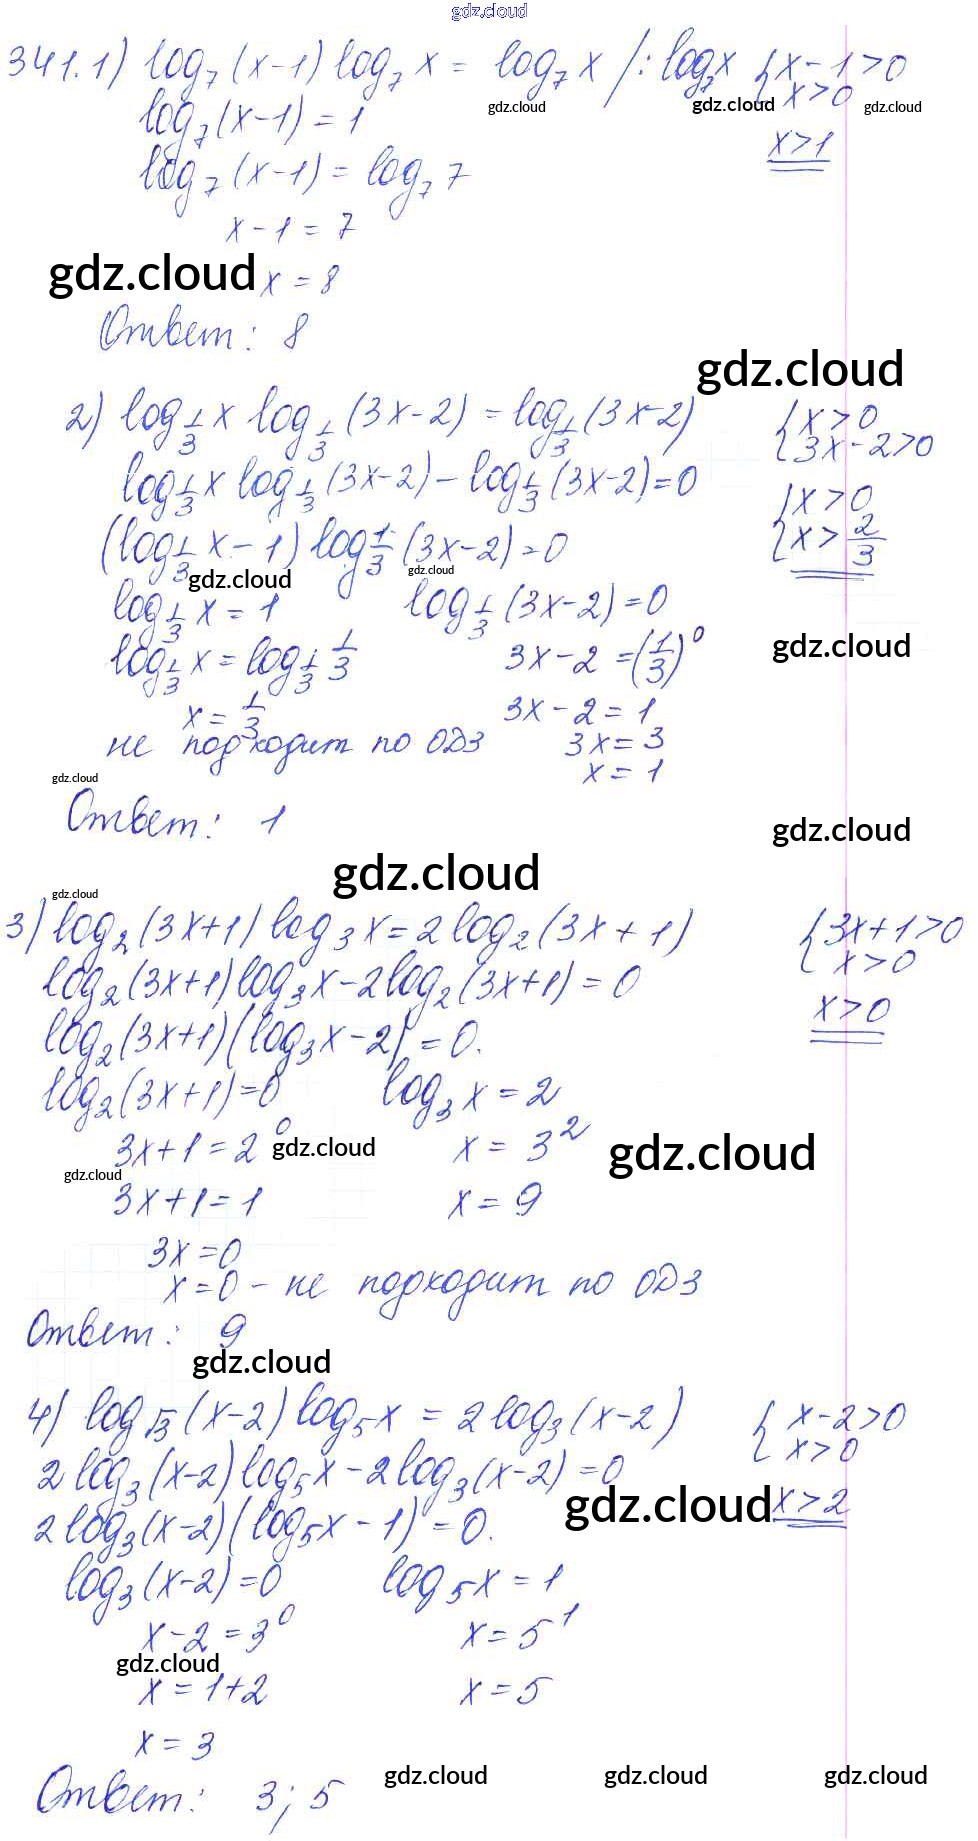 gdz.cloud
341.1) log₇(x-1) log₇ x = log₇ x /: log₇x { x-1>0
x>0
gdz.cloud gdz.cloud gdz.cloud
log₇(x-1) = 1
x>1
log₇(x-1) = log₇ 7
x-1 = 7
gdz.cloud x = 8
Ответ: 8
gdz.cloud
2) log_1/3 x log_1/3 (3x-2) = log_1/3 (3x-2) { x>0
3x-2>0
log_1/3 x log_1/3 (3x-2) - log_1/3 (3x-2) = 0
{ x>0
x> 2/3
(log_1/3 x - 1) log_1/3 (3x-2) = 0
gdz.cloud gdz.cloud
log_1/3 x = 1 log_1/3 (3x-2) = 0
gdz.cloud
log_1/3 x = log_1/3 1/3 3x-2 = (1/3)⁰
x = 1/3 3x-2 = 1
не подходит по ОДЗ 3x = 3
gdz.cloud x = 1
Ответ: 1
gdz.cloud
gdz.cloud
gdz.cloud
3) log₂(3x+1) log₃ x = 2 log₂(3x+1) { 3x+1>0
x>0
log₂(3x+1) log₃ x - 2 log₂(3x+1) = 0
x>0
log₂(3x+1)(log₃ x - 2) = 0.
log₂(3x+1) = 0 log₃ x = 2
3x+1 = 2⁰ gdz.cloud x = 3² gdz.cloud
gdz.cloud
3x+1 = 1 x = 9
3x = 0
x = 0 - не подходит по ОДЗ
Ответ: 9
gdz.cloud
4) log_√3 (x-2) log₅x = 2 log₃(x-2) { x-2>0
x>0
2 log₃(x-2) log₅x - 2 log₃(x-2) = 0
gdz.cloud x>2
2 log₃(x-2)(log₅x - 1) = 0.
log₃(x-2) = 0 log₅x = 1
x-2 = 3⁰ x = 5¹
gdz.cloud
x = 1+2 x = 5
x = 3
gdz.cloud gdz.cloud gdz.cloud
Ответ: 3; 5